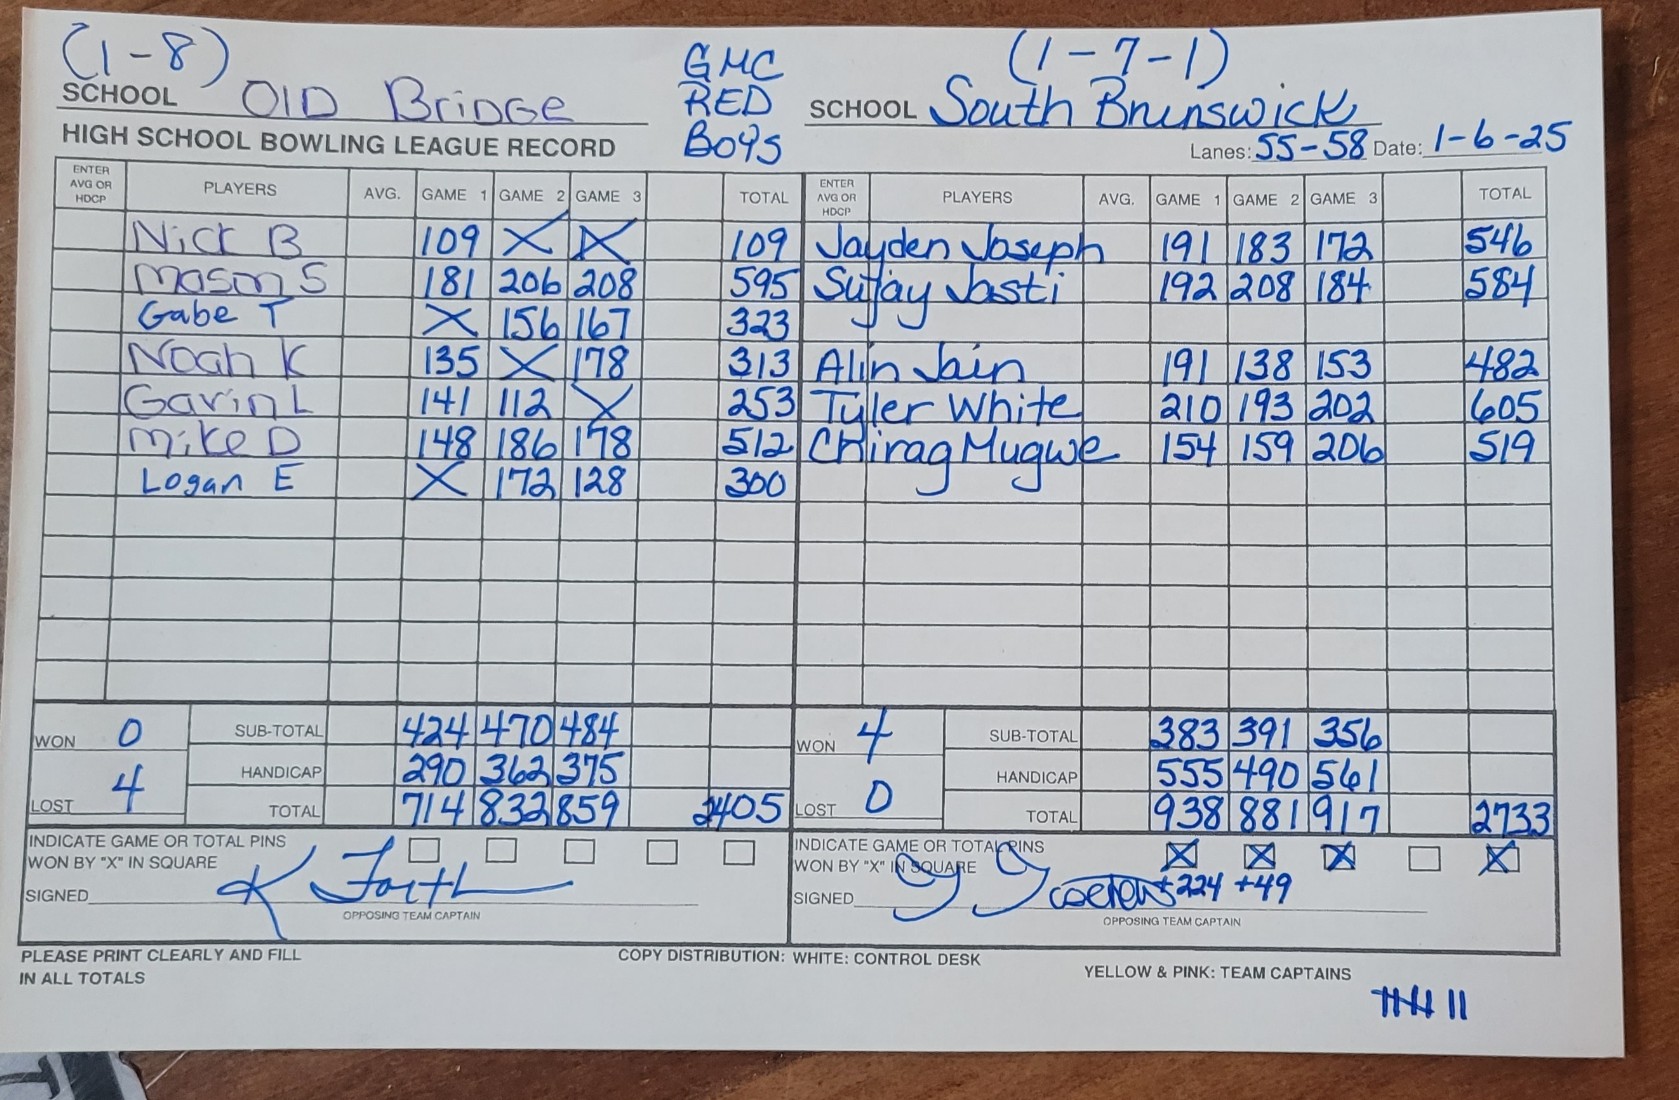 (1-8) GMC (1-7-1)
SCHOOL OlD BriDGe RED SCHOOL South Brunswick
HIGH SCHOOL BOWLING LEAGUE RECORD Boys Lanes: 55-58 Date: 1-6-25
ENTER AVG OR HDCP PLAYERS AVG. GAME 1 GAME 2 GAME 3 TOTAL ENTER AVG OR HDCP PLAYERS AVG. GAME 1 GAME 2 GAME 3 TOTAL
Nick B 109 X X 109 Jayden Joseph 191 183 172 546
Mason S 181 206 208 595 Sujay Jasti 192 208 184 584
Gabe T X 156 167 323
Noah K 135 X 178 313 Alin Jain 191 138 153 482
Gavin L 141 112 X 253 Tyler White 210 193 202 605
Mike D 148 186 178 512 Chirag Mugwe 154 159 206 519
Logan E X 172 128 300
WON 0 SUB-TOTAL 424 470 484 WON 4 SUB-TOTAL 383 391 356
HANDICAP 290 362 375 HANDICAP 555 490 561
LOST 4 TOTAL 714 832 859 2405 LOST 0 TOTAL 938 881 917 2733
INDICATE GAME OR TOTAL PINS INDICATE GAME OR TOTAL PINS
WON BY "X" IN SQUARE WON BY "X" IN SQUARE X X X X
SIGNED K SIGNED +224 +49
OPPOSING TEAM CAPTAIN OPPOSING TEAM CAPTAIN
PLEASE PRINT CLEARLY AND FILL COPY DISTRIBUTION: WHITE: CONTROL DESK
IN ALL TOTALS YELLOW & PINK: TEAM CAPTAINS